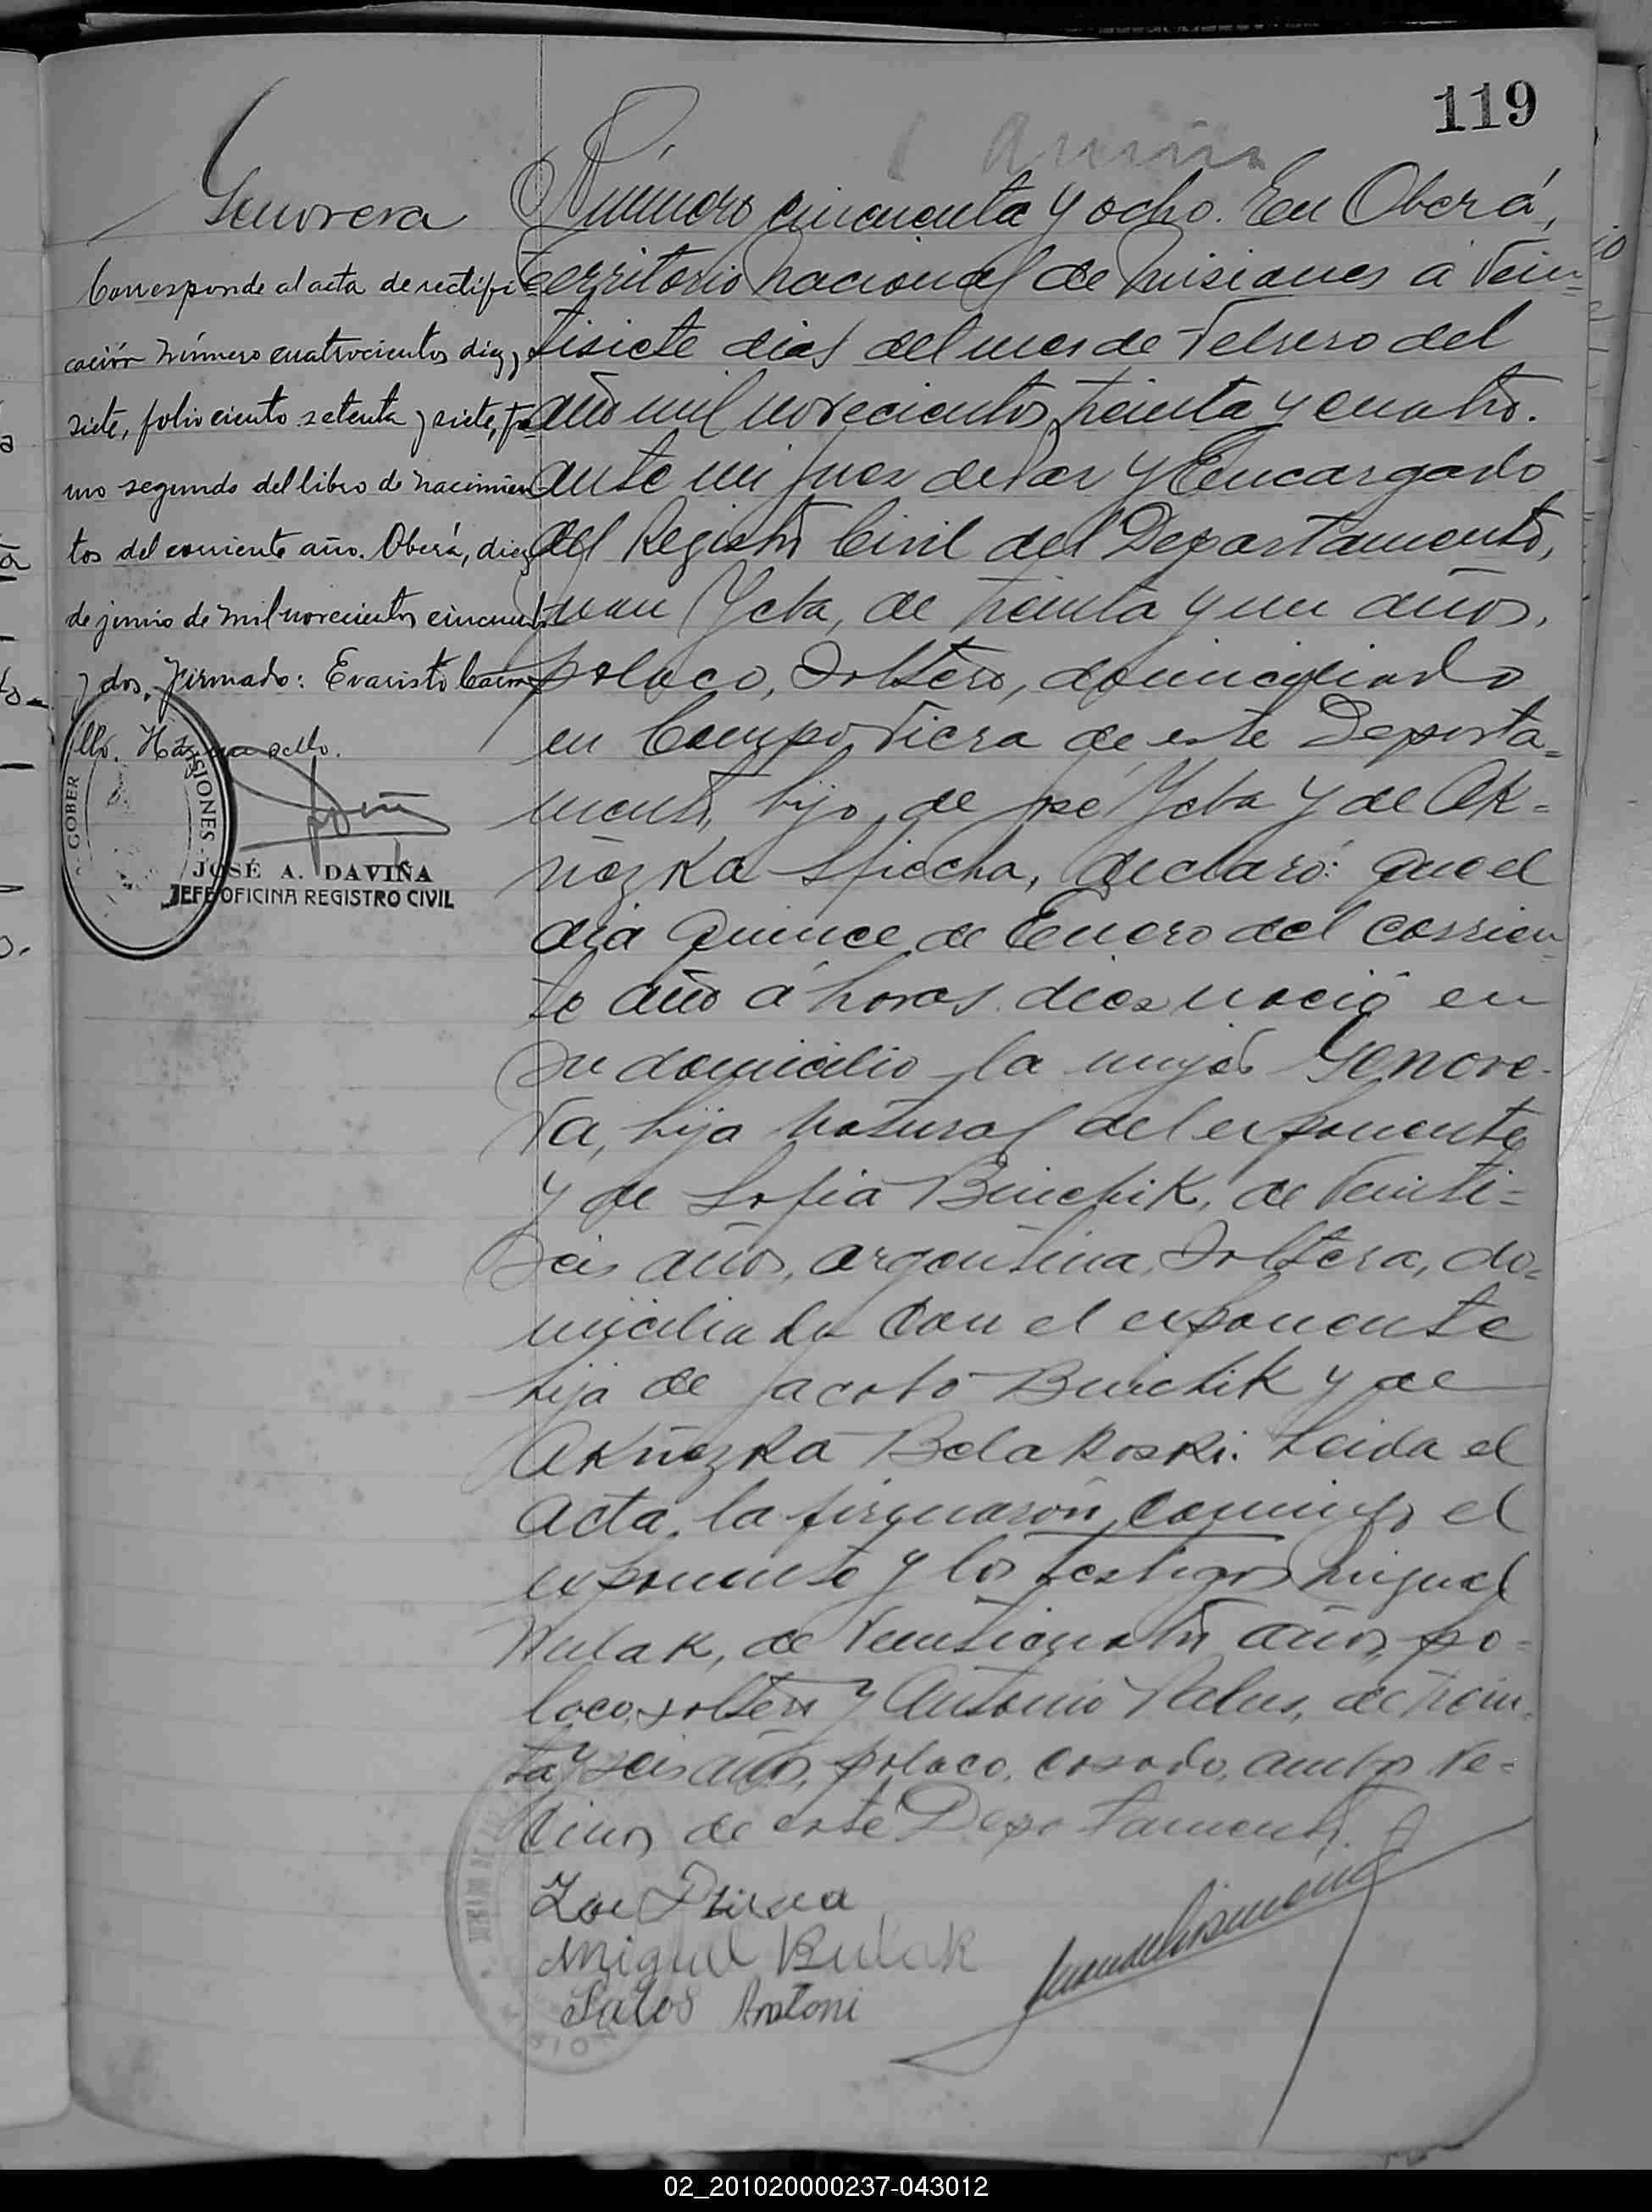 119
Genoveva
Corresponde al acta de rectifi-
cación número cuatrocientos diez y
siete, folio ciento setenta y siete, to-
mo segundo del libro de nacimien
tos del corriente año. Oberá, diez
de junio de mil novecientos cincuenta
y dos. Firmado: Evaristo
llo. Hay un sello.
GOBER
SIONES
JOSÉ A. DAVIÑA
JEFE OFICINA REGISTRO CIVIL
Número cincuenta y ocho. En Oberá,
Territorio Nacional de Misiones a Vein=
tisiete dias del mes de Febrero del
año mil novecientos treinta y cuatro.
ante mi Juez de Paz y Encargado
del Registro Civil del Departamento,
Juan Ycta, de treinta y un años,
polaco, Soltero, domiciliado
en Campo Viera de este Departa=
mento, hijo de José Ycta y de Ak=
ñezka, declaró: que el
dia quince de Enero del corrien=
te año á horas diez nació en
su domicilio la mujer Genove-
va, hija natural del exponente
y de Sofia Buichik, de Veinti=
seis años, argentina, Soltera, do=
miciliada con el exponente
hija de Jacobo Buichik y de
Akñezka Belakoski. Leida el
acta, la firmaron conmigo el
exponente y los testigos Miguel
de Veinticuatro años, po=
laco, soltero y Antonio, de trein
ta y seis años, polaco, casado, ambos Ve=
cinos de este Departamento.
Miguel Bulak
Antoni
02_201020000237-043012